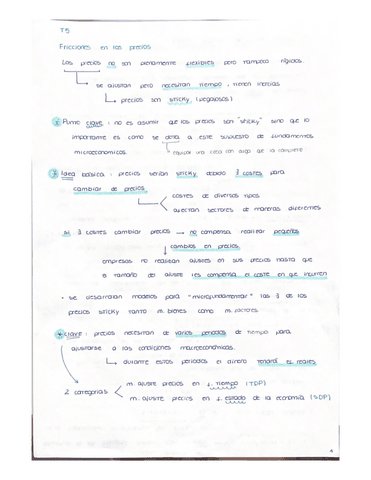 T5
Fricciones en los precios
Los precios no son plenamente flexibles pero tampoco rígidos.
se ajustan pero necesitan tiempo, tienen inercias
precios son sticky (pegajosos)
Punto clave: no es asumir que los precios son "sticky" sino que lo
importante es como se dota a este supuesto de fundamentos
microeconomicos.
equipar una cosa con algo que la complete
Idea básica: precios serían sticky debido ∃ costes para
cambiar de precios
costes de diversos tipos
afectan sectores de maneras diferentes
Si ∃ costes cambiar precios → no compensa realizar pequeños
cambios en precios
empresas no realizan ajustes en sus precios hasta que
o tamaño del ajuste les compensa el coste en que incurren
• se desarrollan modelos para "microfundamentar" las ∃ de los
precios sticky tanto m. bienes como m. factores.
clave: precios necesitan de varios periodos de tiempo para
ajustarse a las condiciones macroeconómicas.
durante estos periodos el dinero tendrá ef. reales.
2 categorías
m. ajuste precios en f. tiempo (TDP)
m. ajuste precios en f. estado de la economía (SDP)
4